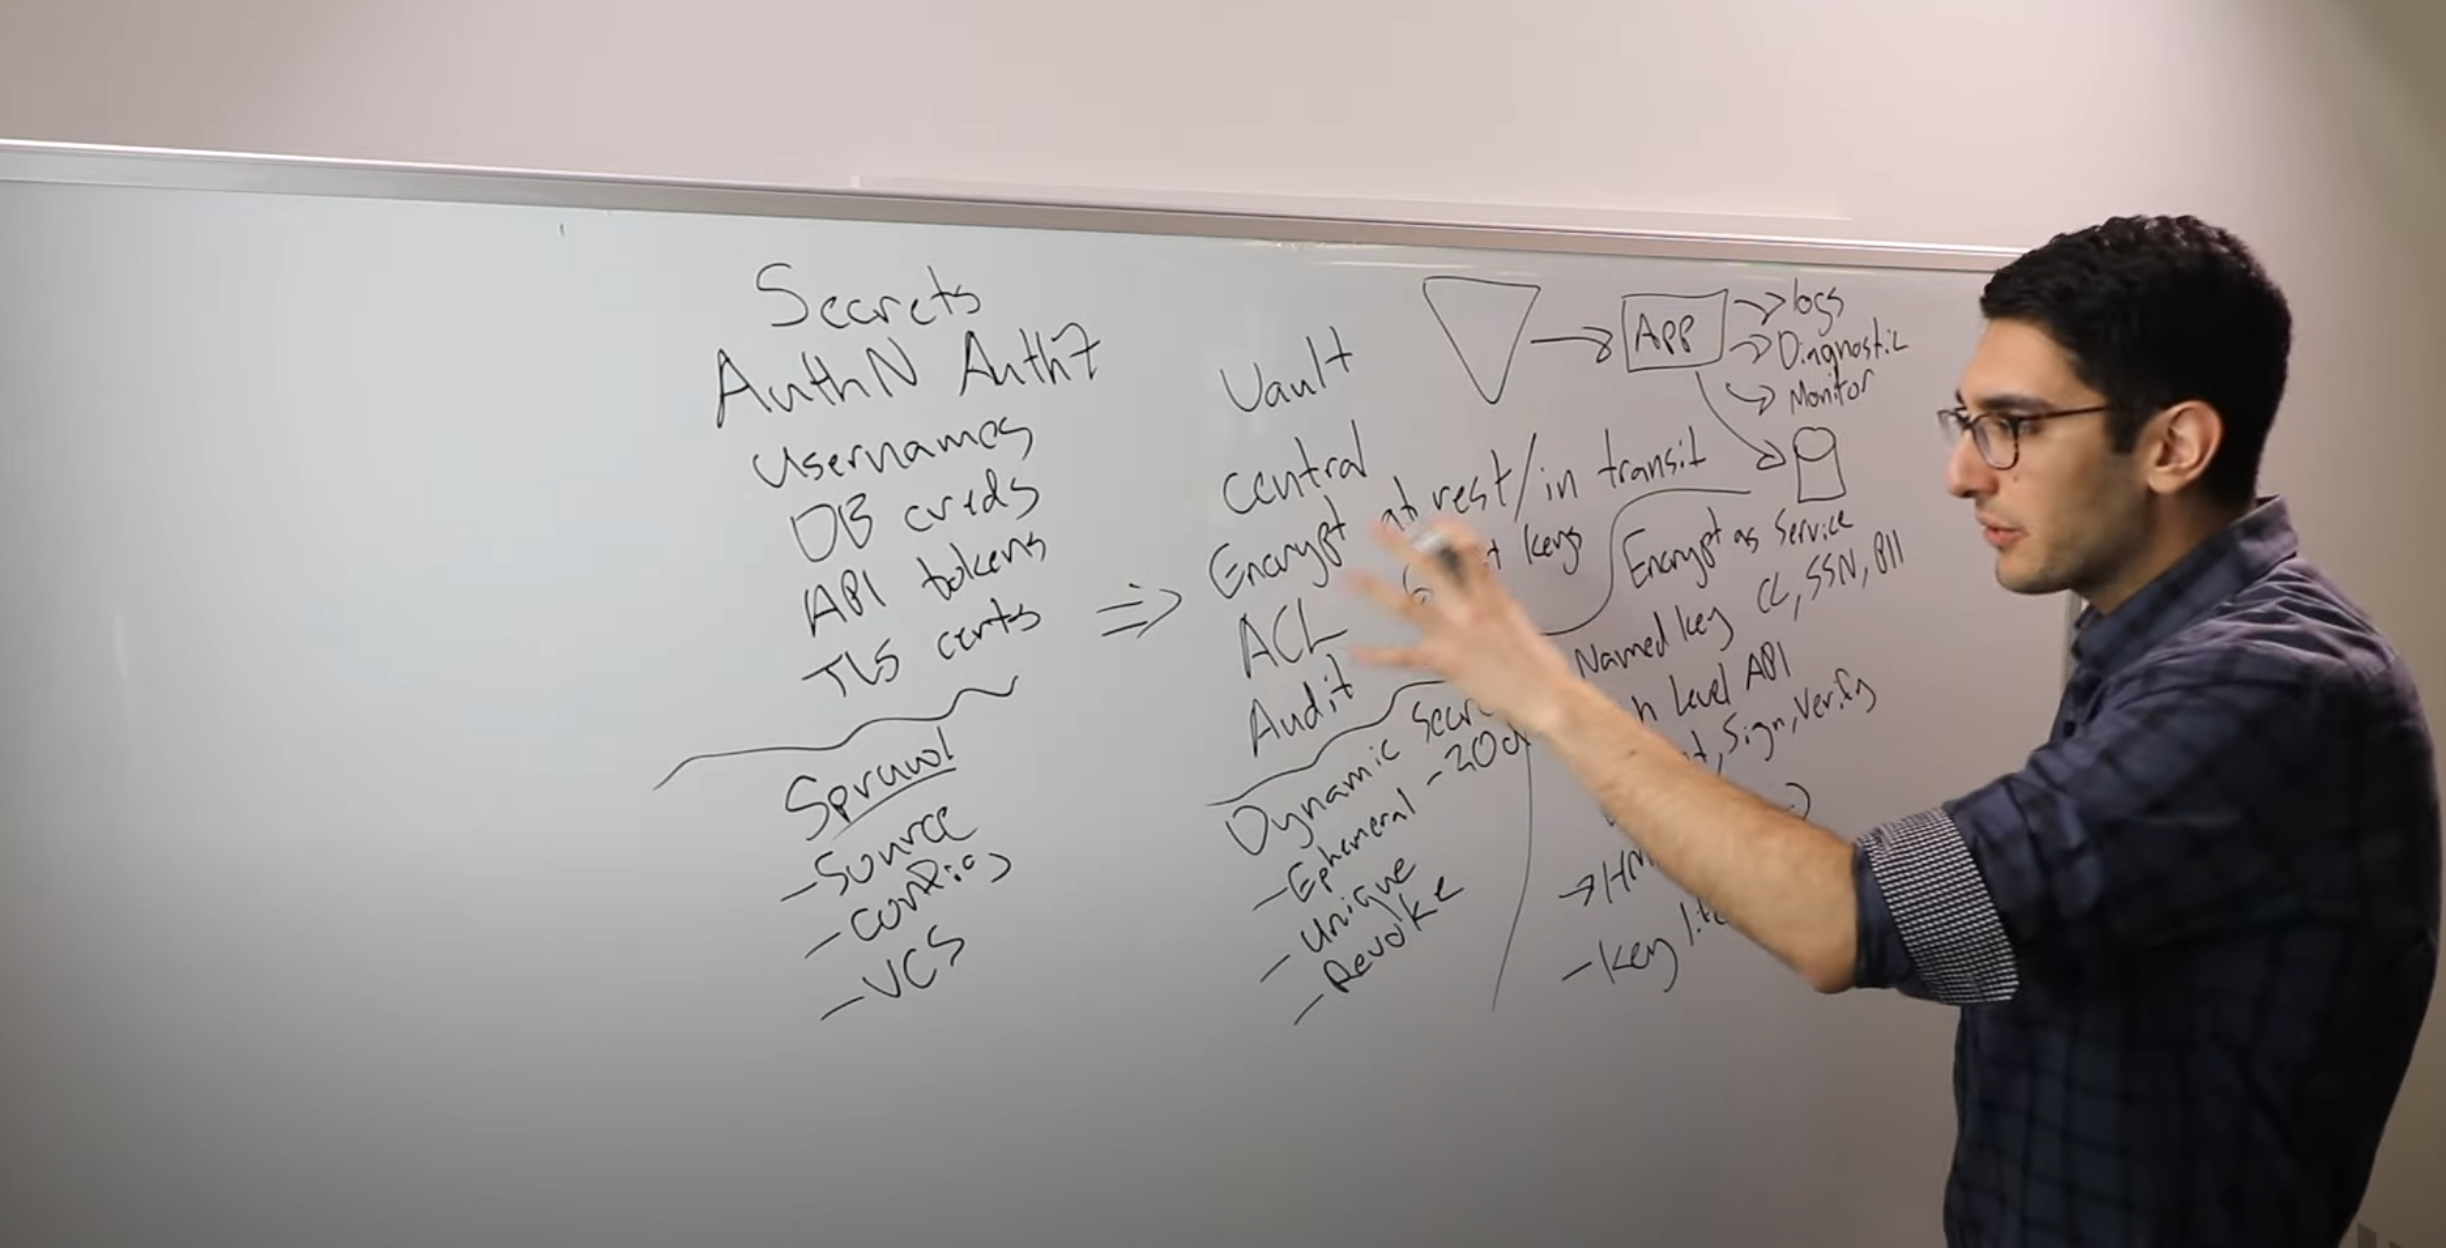 Secrets
AuthN AuthZ
Usernames
DB creds
API tokens
TLS certs
Sprawl
- Source
- Config
- VCS
Vault
central
Encrypt at rest/in transit
keys
ACL
Audit
Dynamic
- Ephemeral - 30d
- Unique
- Revoke
App
logs
Diagnostic
Monitor
Encrypt as Service
Named key CC, SSN, PII
Level API
Sign, Verify
- key